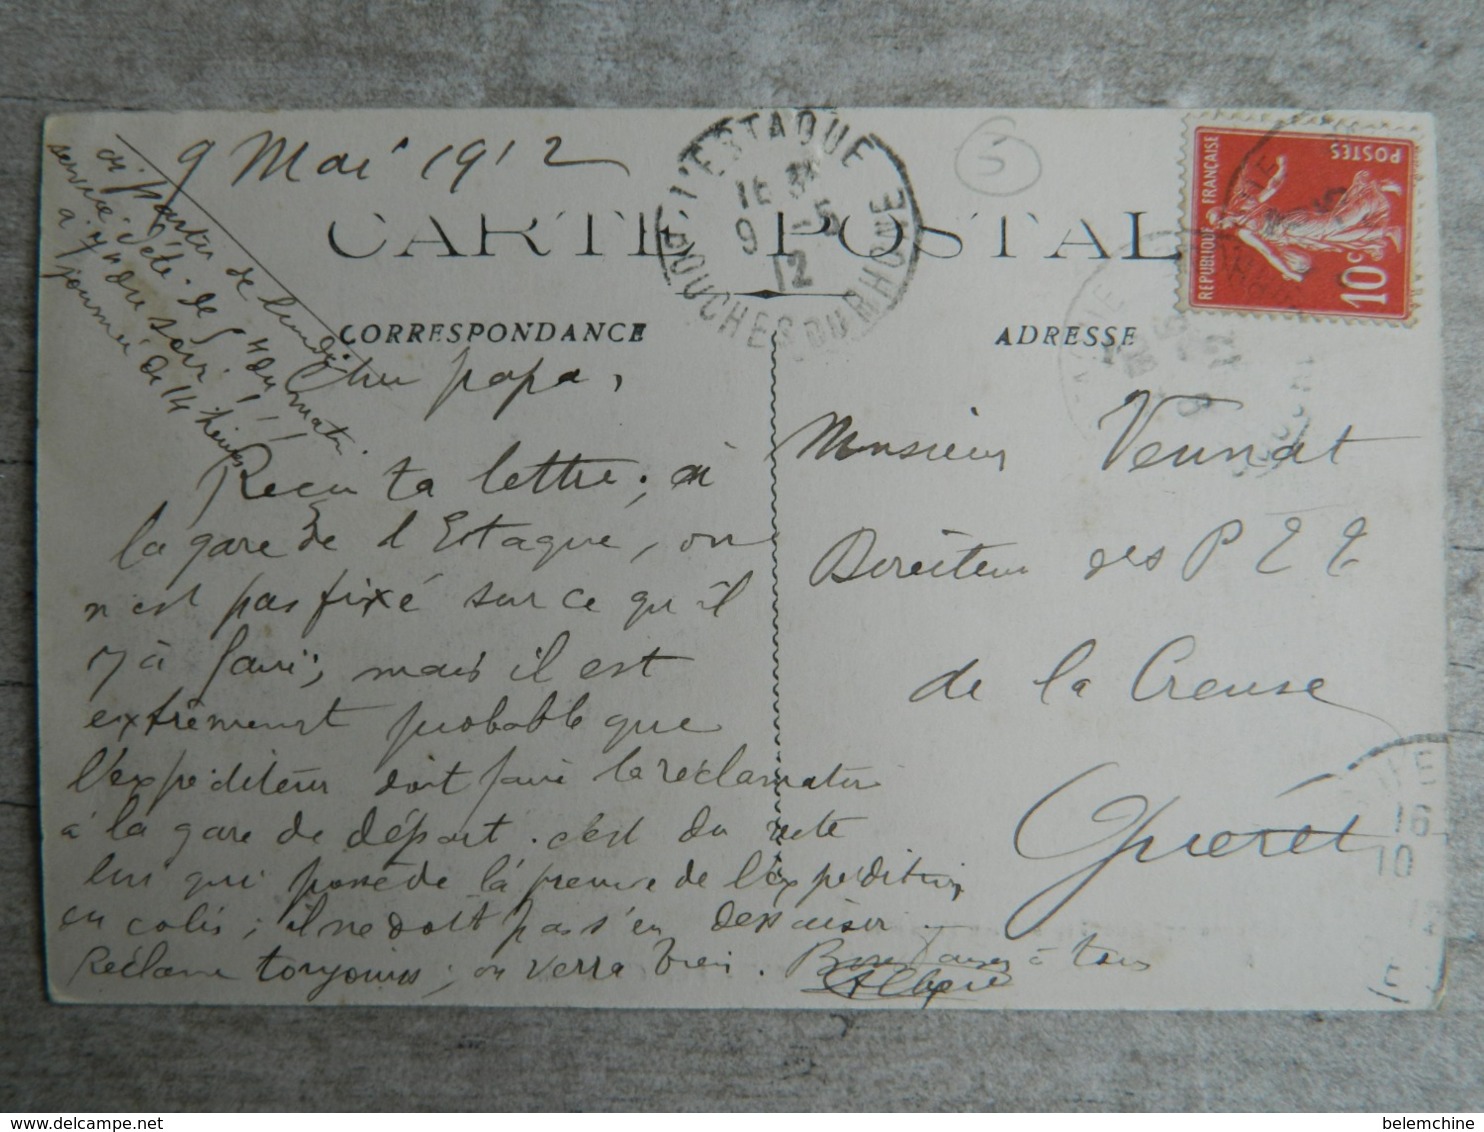 9 Mai 1912
à partir de lundi
service d'été de 5 h du matin
à 7 h du soir !!!
journée de 14 heures
L'ESTAQUE
9 - 5
12
BOUCHES DU RHONE
5
REPUBLIQUE FRANÇAISE
POSTES
10c
CARTE POSTALE
CORRESPONDANCE
ADRESSE
Cher papa,
Reçu ta lettre ; à
la gare de l'Estaque, on
n'est pas fixé sur ce qu'il
y a à faire, mais il est
extrêmement probable que
l'expéditeur doit faire la réclamation
à la gare de départ. c'est du reste
lui qui possède la preuve de l'expédition
en colis ; il ne doit pas s'en dessaisir.
Réclame toujours ; on verra bien. à tous
Monsieur Vennat
Directeur des P E T
de la Creuse
Guéret
16
10
12
E
belemchine